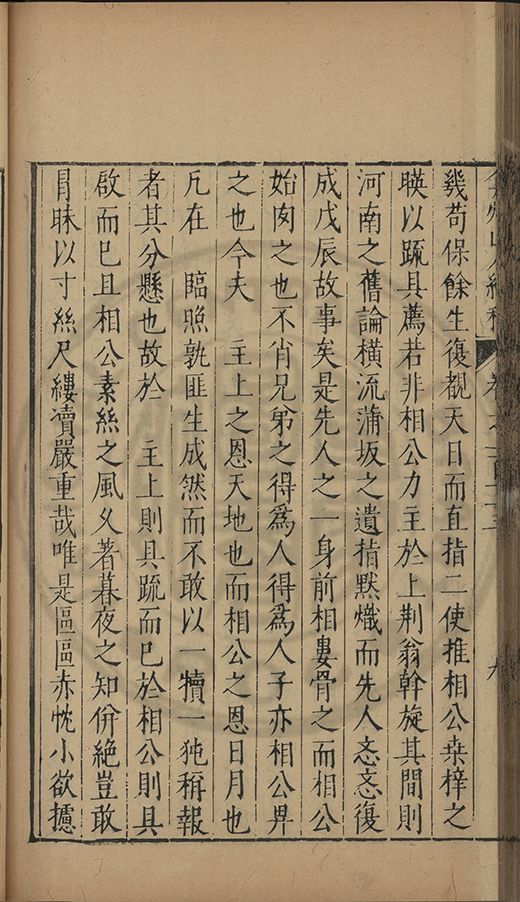 弇州山人續稿 卷之一百
幾苟保餘生復覩天日而直指二使推相公桒梓之
暎以䟽具薦若非相公力主於上荆翁幹旋其間則
河南之舊論橫流蒲坂之遺指黙熾而先人忞忞復
成戊辰故事矣是先人之一身前相妻骨之而相公
始肉之也不肖兄弟之得爲人得爲人子亦相公畀
之也今夫 主上之恩天地也而相公之恩日月也
凡在 臨照孰匪生成然而不敢以一犢一㹠稱報
者其分懸也故於 主上則具疏而已於相公則具
啟而已且相公素絲之風乆著暮夜之知併絶豈敢
冐昧以寸絲尺縷瀆嚴重哉唯是區區赤忱小欲攄